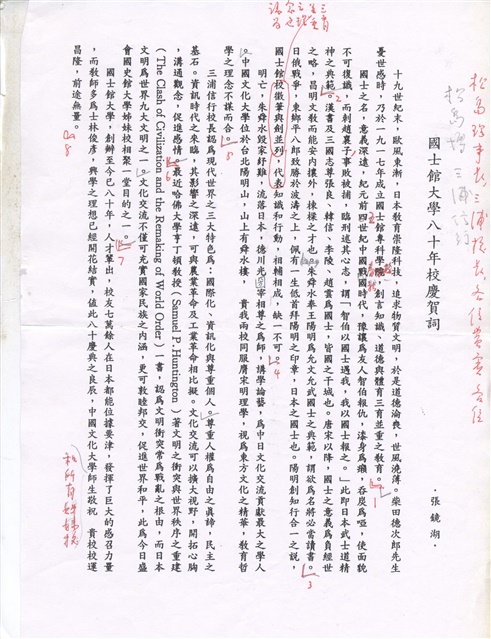 國士館大學八十年校慶賀詞
張鏡湖
十九世紀末，歐風東漸，日本教育崇隆科技，追求物質文明，於是道德淪喪，世風澆薄。柴田德次郎先生
憂世感時，乃於一九一七年成立國士館專科學院，創言知識、道德與體育三育並重之教育。
國士之名，意義深遠，紀元前四世紀中國戰國時代，豫讓為友人智伯報仇，漆身為癩，吞炭為啞，使面貌
不可復識，而刺趙襄子事敗被捕，臨刑述其心志，謂「智伯以國士遇我，我以國士報之。」此即日本武士道精
神之典範。漢書及三國志尊張良、韓信、李陵、趙雲為國士，皆國之干城也。唐宋以降，國士之意義為負經世
之略，昌明文教而能安內攘外，揀樑之才也。朱舜水奉王陽明為允文允武國士之典範，謂欲為名將必當讀書。
日俄戰爭，東鄉平八郎致勝於波濤之上，佩有一生低首拜陽明之印章，日本之國士也。陽明創知行合一之說，
國士館校徽筆與劍並列，代表知識和行動，相輔相成，缺一不可。
明亡，朱舜水毀家紓難，流落日本，德川光圀宰相尊之為師，講學論藝，為中日文化交流貢獻最大之學人
。中國文化大學位於台北陽明山，山上有舜水樓，　貴我兩校同服膺宋明理學，視為東方文化之精華，教育哲
學之理念不謀而合。
三浦信行校長認為現代世界之三大特色為：國際化、資訊化與尊重個人。尊重人權為自由之真諦，民主之
基石。資訊時代之來臨，其影響之深遠，可與農業革命及工業革命相比擬。文化交流可以擴大視野，開拓心胸
，溝通觀念，促進感情。最近哈佛大學亨丁頓教授（Samuel P. Huntington）著文明之衝突與世界秩序之重建
（The Clash of Civilization and the Remaking of World Order）一書，認為文明衝突常為戰亂之根由，而日本
文明為世界九大文明之一。文化交流不僅可充實國家民族之內涵，更可敦睦邦交，促進世界和平，此為今日盛
會國史館大學姊妹校相聚一堂目的之一。
國士館大學，創辦至今已八十年，人才輩出，校友七萬餘人在日本都能位據要津，發揮了巨大的感召力量
，而教師多為士林俊彥，興學之理想已經開花結實，值此八十慶典之良辰，中國文化大學師生敬祝　貴校校運
昌隆，前途無量。
1
2
3
4
5
7
8